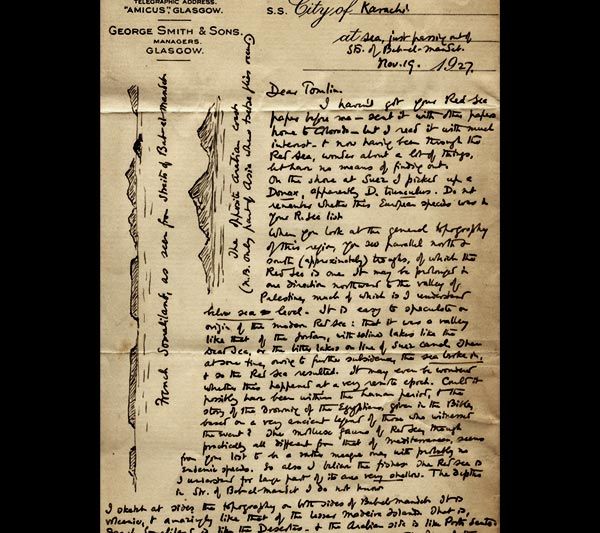 TELEGRAPHIC ADDRESS.
"AMICUS", GLASGOW.
GEORGE SMITH & SONS.
MANAGERS.
GLASGOW.
S.S. City of Karachi
at sea, just passing out of
Str. of Bab-el-Mandeb.
Nov. 19. 1927.
French Somaliland, as seen from Straits of Bab el Mandeb
The opposite Arabian coast
(N.B. only part of Asia where tsetse flies occur)
Dear Tomlin.
I haven't got your Red Sea
paper before me – sent it with other papers
home to Colorado – but I read it with much
interest – & now having been through the
Red Sea, wonder about a lot of things,
but have no means of finding out.
On the shore at Suez I picked up a
Donax, apparently D. trunculus. Do not
remember whether this European species was in
your R. Sea list
When you look at the general topography
of this region, you see parallel north &
south (approximately) troughs, of which the
Red Sea is one. It may be prolonged in
one direction northward to the valley of
Palestine, much of which is I understand
below sea level. It is easy to speculate on
origin of the modern Red Sea: that it was a valley
like that of the Jordan, with saline lakes like the
Dead Sea, or the bitter lakes on line of Suez canal. Then
at some time, owing to further subsidence, the sea broke in,
& so the Red Sea resulted. It may even be wondered
whether this happened at a very remote epoch. Could it
possibly have been within the human period, & the
story of the drowning of the Egyptians given in the Bible,
based on a very ancient legend of those who witnessed
the event? The mollusc fauna of Red Sea, though
practically all different from that of mediterranean, seems
from your list to be a rather meagre one, with probably no
endemic species. So also I believe the fishes. The Red Sea is
I understand for large part of its area very shallow. The depths
in Str. of Bab-el-mandeb I do not know
I sketch at sides the topography on both sides of Bab-el-mandeb. It is
volcanic, & amazingly like that of the lesser madeira Islands. That is,
French Somaliland is like the Desertas – & the Arabian side is like Porto Santo